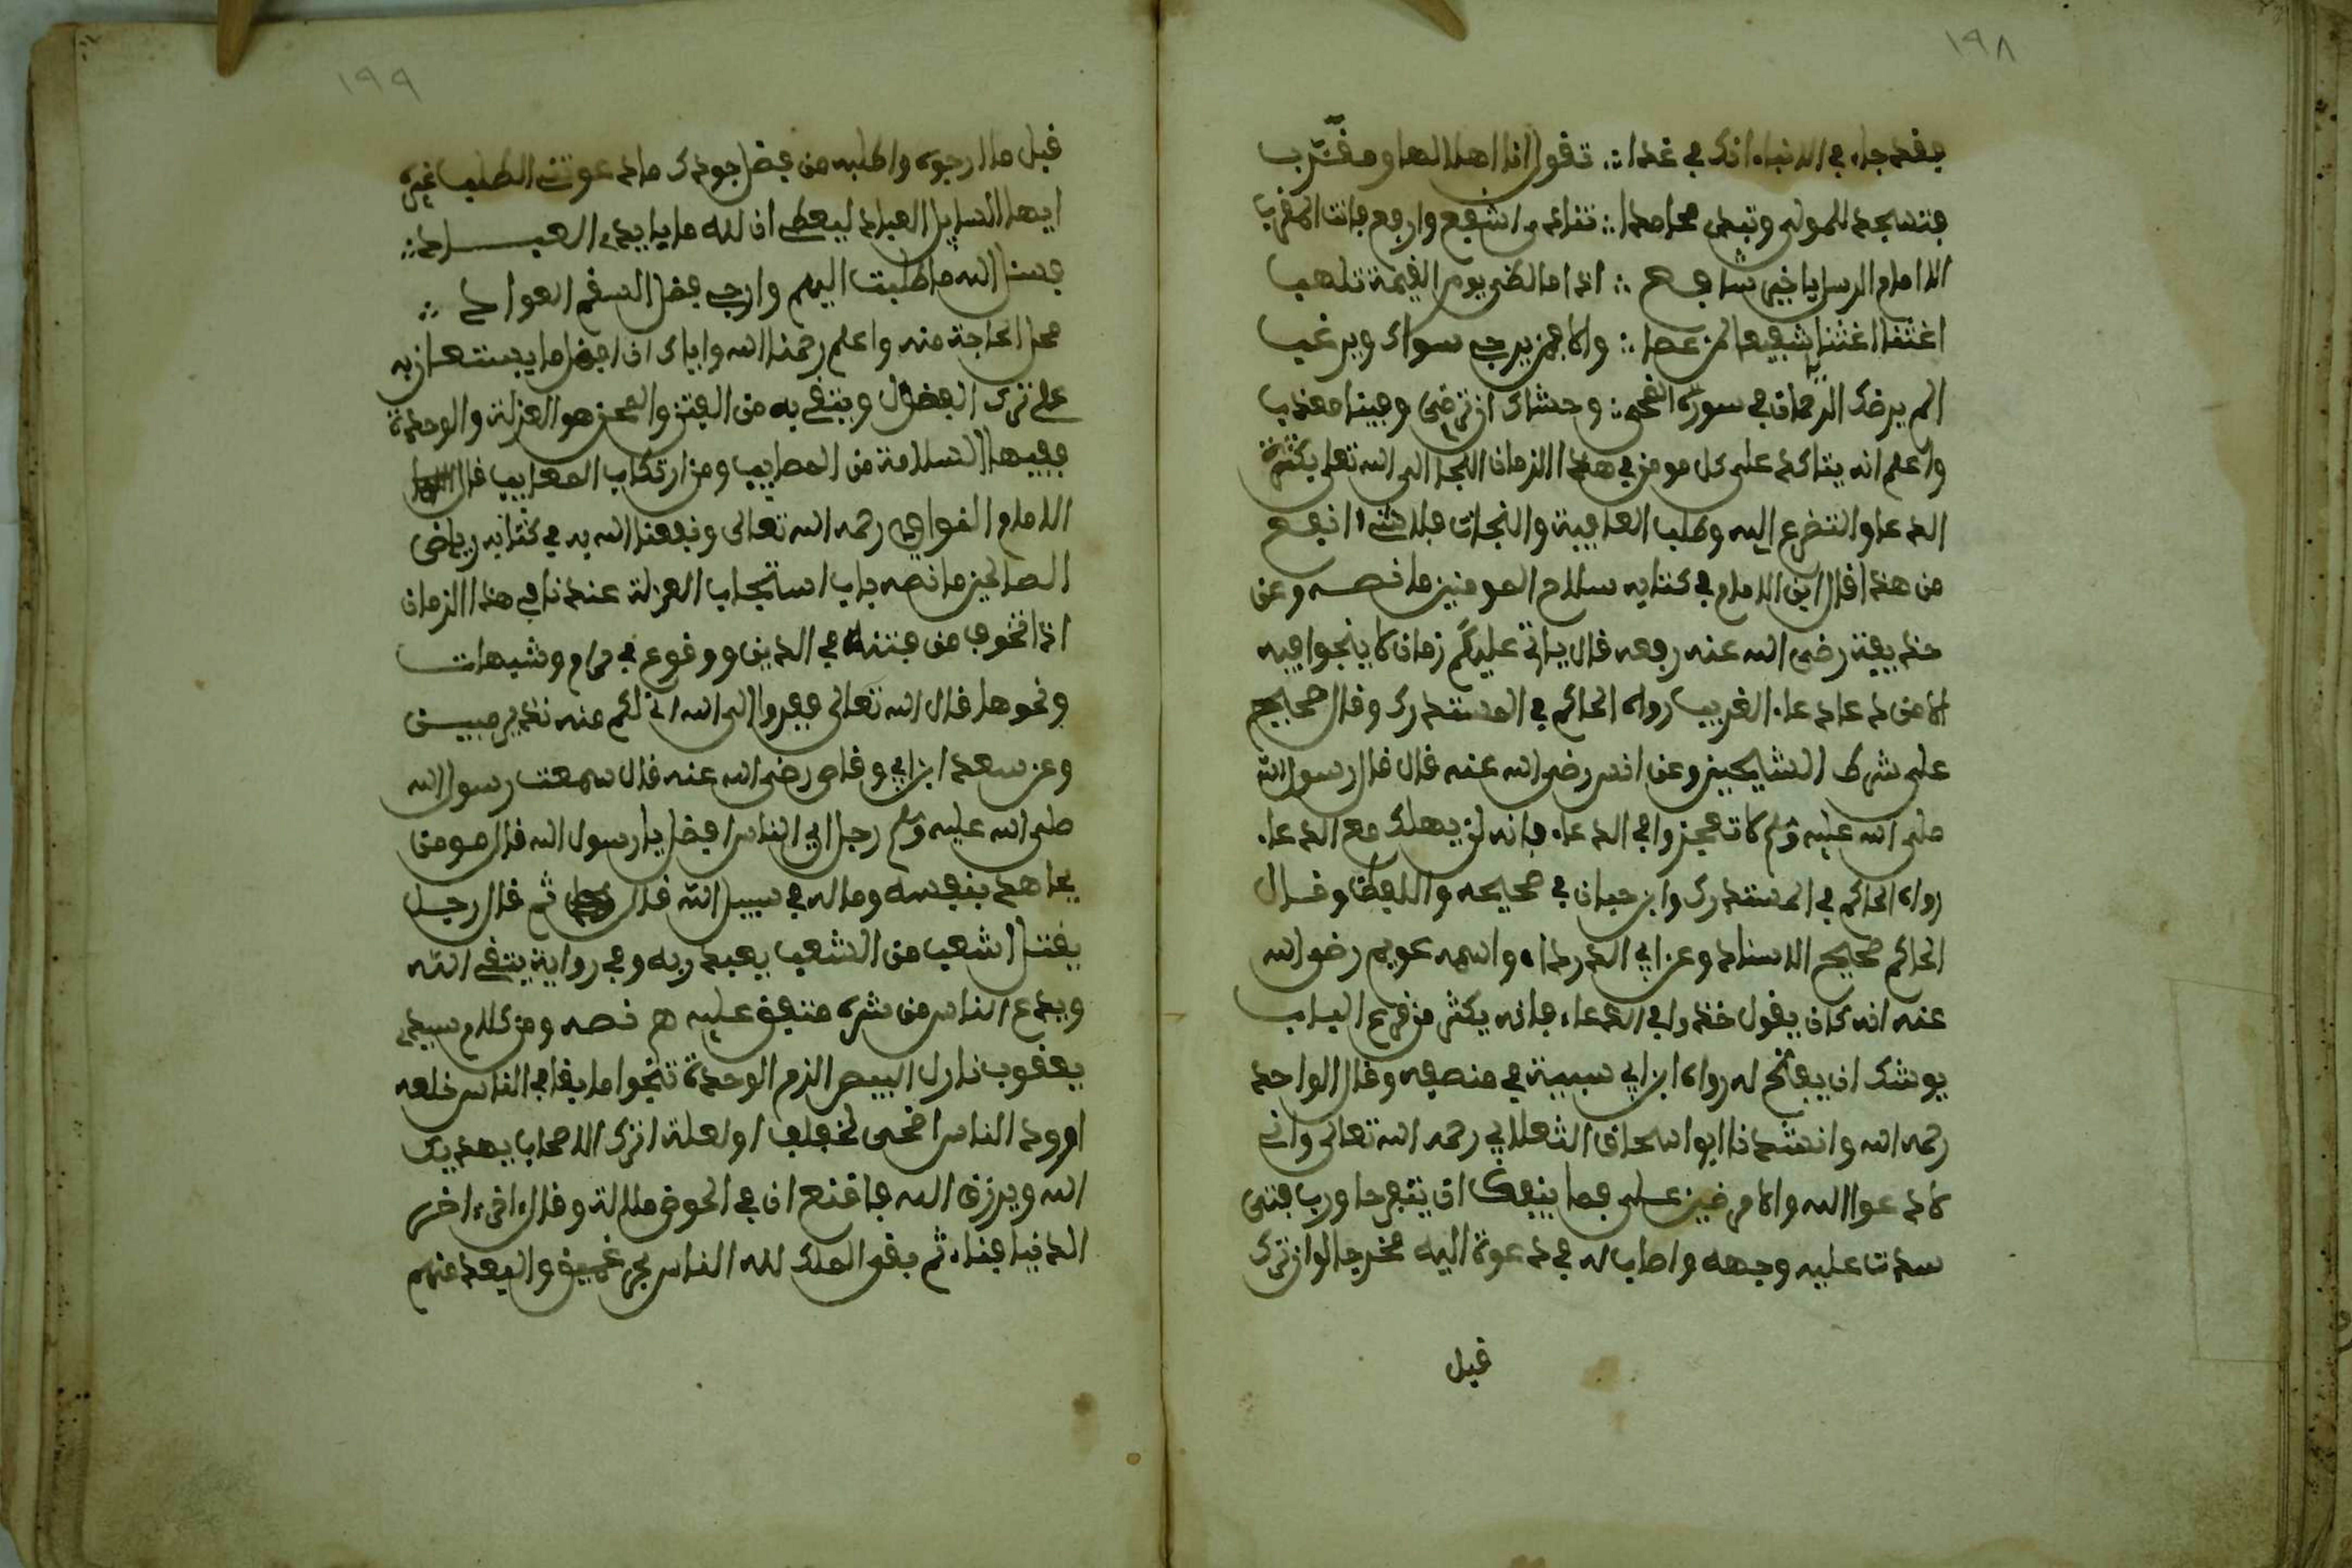 ١٩٨
فقد جاء في الدنياء اذك في غدا ∴ تقول انا اهلا لها ومقرب
فتسجد للمولى وتبدى محامدا ∴ تنادى اشفع وارفع فانت المقرب
انا امام الرسل يا خير شافع ∴ اذا ما لظى يوم القيمة تلهب
اغثنا اغثنا يا شفيعا لمن عصا ∴ والا فمن يرجى سواك ويرغب
الم يرضك الرحمان في سورة الضحى ∴ وحشاك ان ترضى وفينا معذب
واعلم انه يتاكد على كل مومن في هذا الزمان اللجا الى الله تعلى بكثرة
الدعا والتضرع اليه وطلب العافية والنجات فلا شيء انفع
من هذا قال ابن الامام في كتابه سلاح المومنين ما نصه وعن
حذيفة رضى الله عنه رفعه قال ياتي عليكم زمان لا ينجوا فيه
الا من دعا دعاء الغريب رواه الحاكم في المستدرك وقال صحيح
على شرط الشايخين وعن انس رضى الله عنه قال قال رسول الله
صلى الله عليه وسلم لا تعجزوا في الدعاء فانه لن يهلك مع الدعاء
رواه الحاكم في المستدرك وابن حبان في صحيحه واللفظ وقال
الحاكم صحيح الاسناد وعن ابي الدرداء واسمه عويم رضى الله
عنه انه كان يقول خذ وا في الدعاء فانه يكثر من قرع الباب
يوشك ان يفتح له رواه ابن ابي سيبة في منصفه وقال الواحد
رحمه الله وانشدنا ابو اسحاق الثعلابي رحمه الله تعالى واني
لادعوا الله والامر ضيق على فما ينفك ان يتفرجا ورب فتى
سدت عليه وجهه واصاب له في دعوة اليه مخرجا لو ان ترك
قبل
١٩٩
قبل ما ارجوه واطلبه من فضل جودك ما دعوتني الطلب غيره
ايها السايل العباد ليعطى ان لله ما يايدى العبـــاد ∴
فسئل الله ما طلبت اليهم وارج فضل المقسم العواد ∴
محل الحاجة منه واعلم رحمنا الله واياك ان افضل ما يستعان به
على ترك الفضول ويتقى به من الفتن والمحن هو العزلة والوحدة
ففيها السلامة من المصايب ومن ارتكاب المعايب قال
الامام النواوي رحمه الله تعالى ونفعنا الله به في كتابه رياض
الصالحين ما نصه باب استحباب العزلة عند نا في هذا الزمان
اذا نخوف من فتنة في الدين ووقوع في حرام وشبهات
ونحوها قال الله تعالى ففروا الى الله اني لكم منه نذير مبين
وعن سعد ابن ابي وقاص رضى الله عنه قال سمعت رسول الله
صلى الله عليه وسلم رجل اي الناس افضل يا رسول الله قال مومن
يجاهد بنفسه وماله في سبيل الله قال ثم قال رجل
يفتل اشعب من الشعب يعبد ربه وفي رواية يتقى الله
ويدع الناس من شره متفق عليه هم نصه ومن كلام سيدى
يعقوب نازل البيصر الزم الوحدة تنجوا ما بقا في الناس خلعه
اوود الناس اضحى لنعلف او لعلة اترك الاصحاب يهديك
الله ويرزق الله فاقنع ان في الحوض ملالة وقال اخي اخر
الدنيا فناء ثم بقى الملك لله الناس بحر عميق والبعد عنهم